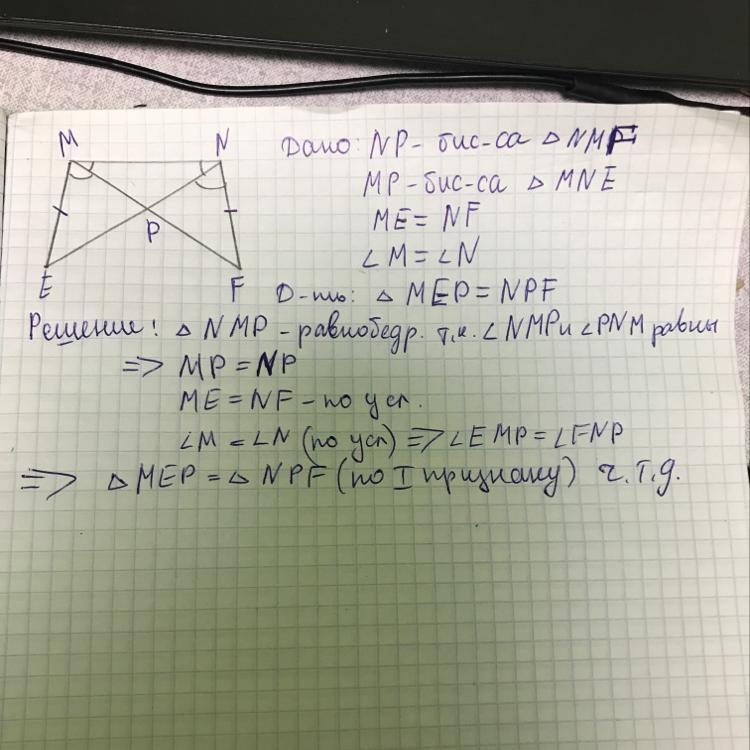 M N
P
E F
Дано: NP - бис-са △ NMF
MP - бис-са △ MNE
ME = NF
∠M = ∠N
Д-ть: △ MEP = NPF
Решение: △ NMP - равнобедр. т.к. ∠NMP и ∠PNM равны
=> MP = NP
ME = NF - по усл.
∠M = ∠N (по усл) => ∠EMP = ∠FNP
=> △ MEP = △ NPF (по I признаку) ч.т.д.